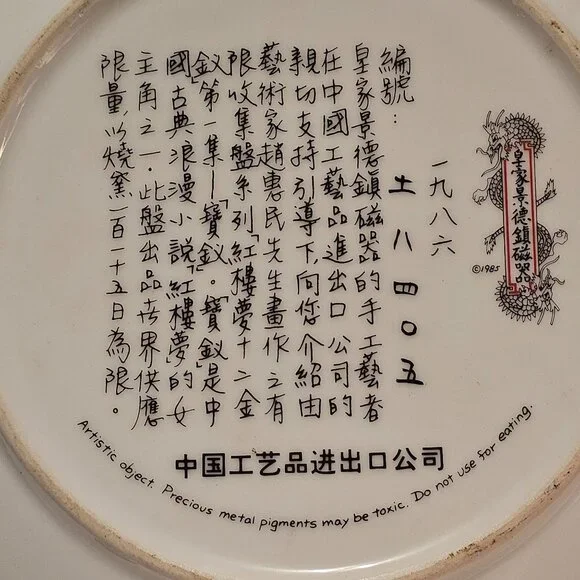 皇家景德鎮磁器
©1985
一九八六
編號: 土八四〇五
皇家景德鎮磁器的手工藝者
在中國工藝品進出口公司的
親切支持引導下,向您介紹由
藝術家趙惠民先生畫作之有
限收集盤系列「紅樓夢十二金
釵」第一集—「寶釵」。「寶釵」是中
國古典浪漫小說「紅樓夢」的女
主角之一。此盤出品世界供應
限量,以燒窯一百一十五日為限。
中国工艺品进出口公司
Artistic object. Precious metal pigments may be toxic. Do not use for eating.